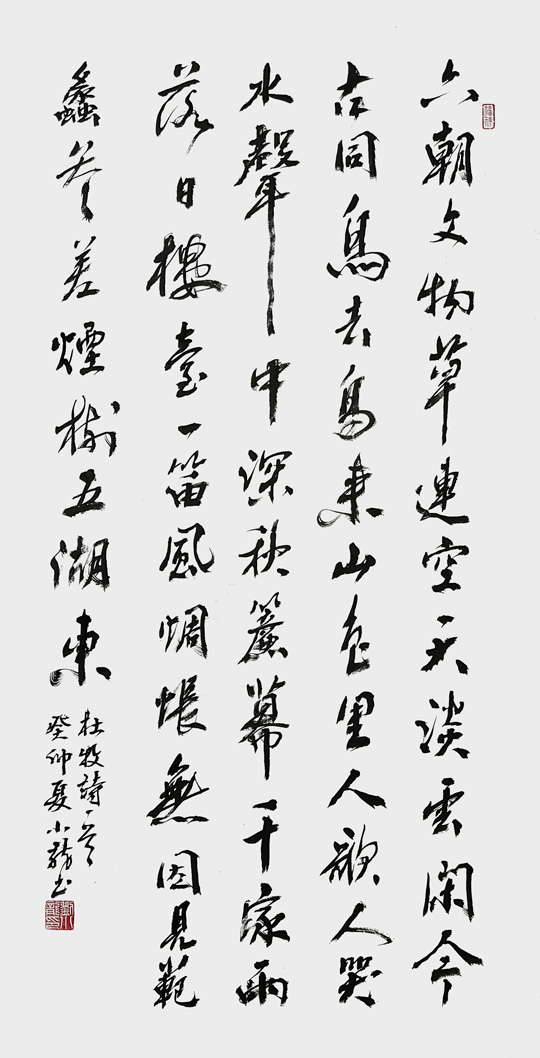 六朝文物草連空天淡雲閑今
古同鳥去鳥來山色里人歌人哭
水聲中深秋簾幕千家雨
落日樓臺一笛風惆悵無因見範
蠡參差煙樹五湖東
杜牧詩一首
癸卯夏小龍书